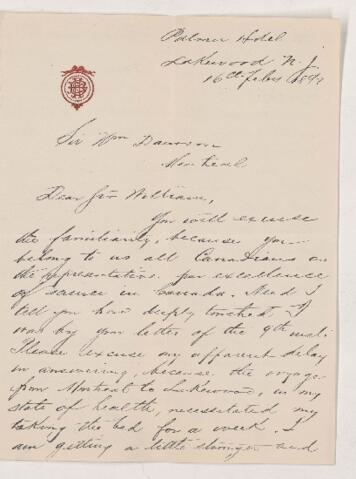 Palmer Hotel
Lakewood N. J.
16th Feby 1897
Sir Wm Dawson
Montreal
Dear Sir William,
You will excuse
the familiarity, because you
belong to us all Canadians as
the representative par excellence
of science in Canada. Need I
tell you how deeply touched I
was by your letter of the 9th
Please excuse my apparent delay
in answering, because the voyage
from Montreal to Lakewood, in my
state of health, necessitated my
taking the bed for a week. I
am getting a little stronger and